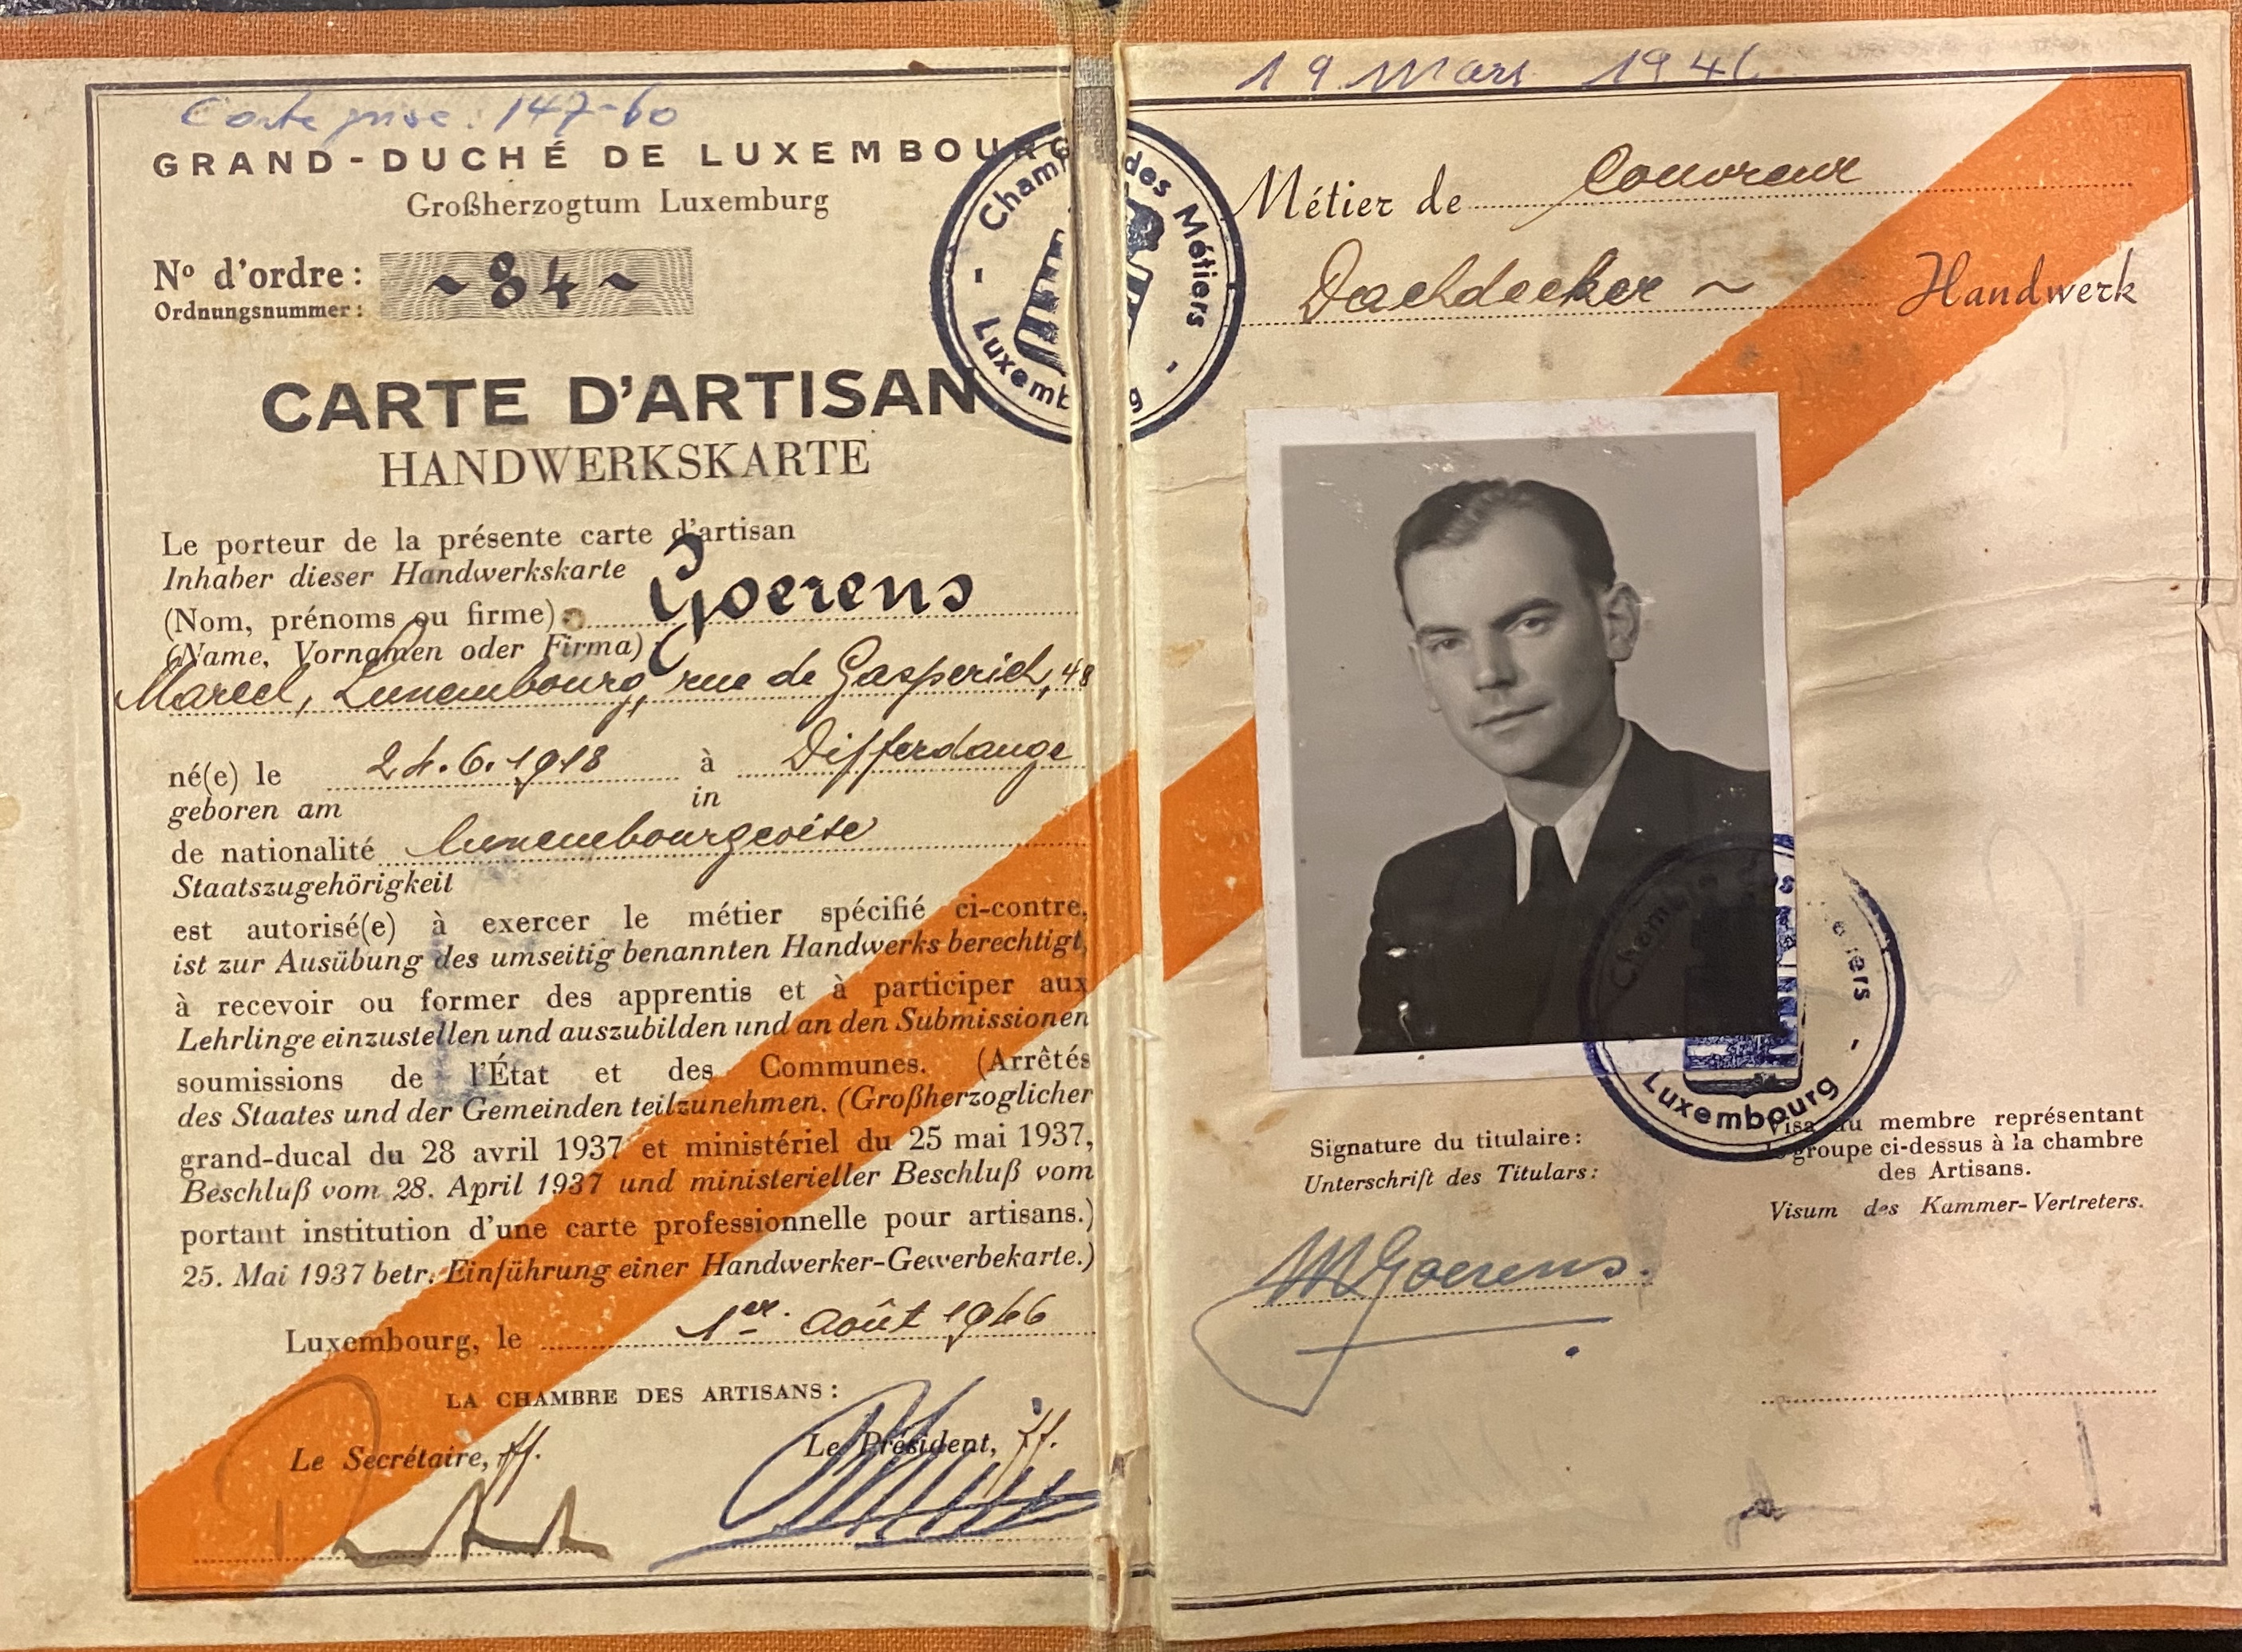 Carte grise: 147-60
GRAND-DUCHÉ DE LUXEMBOURG
Großherzogtum Luxemburg
Nº d'ordre :
Ordnungsnummer :
~84~
CARTE D'ARTISAN
HANDWERKSKARTE
Le porteur de la présente carte d'artisan
Inhaber dieser Handwerkskarte
(Nom, prénoms ou firme) Goerens
(Name, Vornamen oder Firma)
Marcel, Luxembourg, rue de Gasperich, 48
né(e) le 24.6.1918 à Differdange
geboren am in
de nationalité luxembourgeoise
Staatszugehörigkeit
est autorisé(e) à exercer le métier spécifié ci-contre,
ist zur Ausübung des umseitig benannten Handwerks berechtigt,
à recevoir ou former des apprentis et à participer aux
Lehrlinge einzustellen und auszubilden und an den Submissionen
soumissions de l'État et des Communes. (Arrêtés
des Staates und der Gemeinden teilzunehmen. (Großherzoglicher
grand-ducal du 28 avril 1937 et ministériel du 25 mai 1937,
Beschluß vom 28. April 1937 und ministerieller Beschluß vom
portant institution d'une carte professionnelle pour artisans.)
25. Mai 1937 betr. Einführung einer Handwerker-Gewerbekarte.)
Luxembourg, le 1er août 1946
LA CHAMBRE DES ARTISANS :
Le Secrétaire, ff.
Le Président, ff.
Chambre des Métiers
- Luxembourg -
19 Mars
Métier de Couvreur
Dachdecker ~ Handwerk
Chambre des Métiers
Luxembourg -
Signature du titulaire :
Unterschrift des Titulars :
MGoerens.
Visa du membre représentant
le groupe ci-dessus à la chambre
des Artisans.
Visum des Kammer-Vertreters.